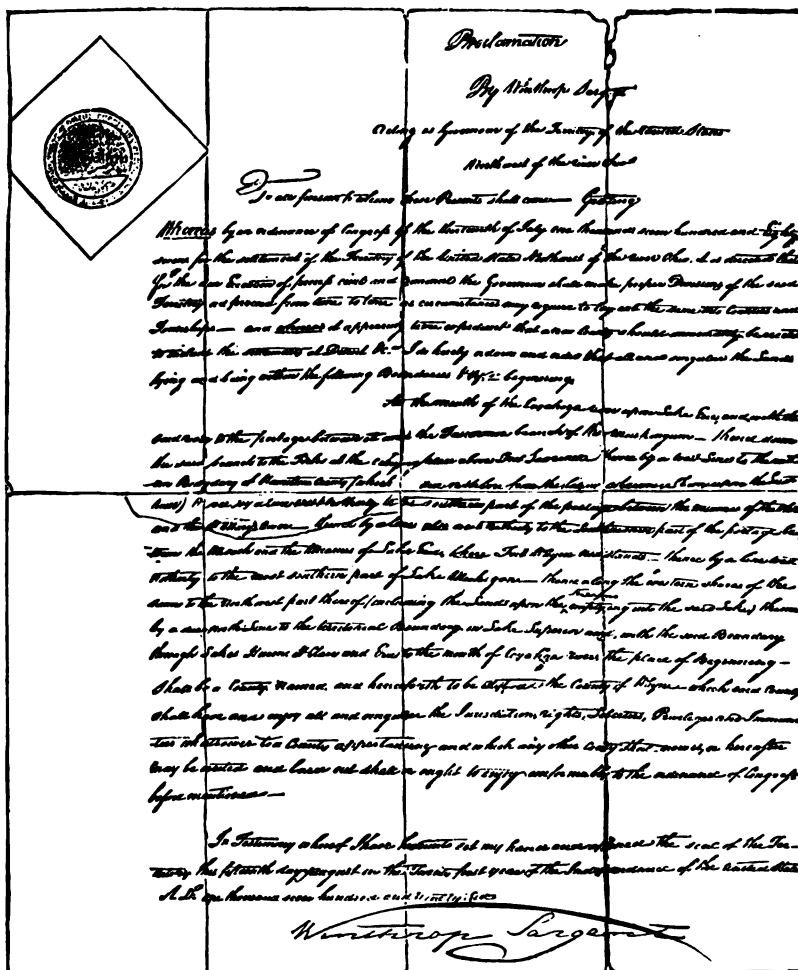 Proclamation
By Winthrop Sargent
Acting as Governour of the Territory of the United States
Northwest of the river Ohio
To all persons to whom these Presents shall come — Greeting
Whereas by an ordinance of Congress of the thirteenth of July one thousand seven hundred and Eighty
seven for the settlement of the Territory of the United States Northwest of the river Ohio, it is directed that
for the due Execution of process civil and criminal the Governour shall make proper Divisions of the said
Territory and proceed from time to time as circumstances may require to lay out the same into Counties and
Townships — and whereas it appearing to me expedient that a new County should immediately be erected
to include the settlements of Detroit &c. I do hereby ordain and order that all and singular the Lands
lying and being within the following Boundaries Viz. beginning
At the mouth of the Cuyahoga river upon Lake Erie, and with the
said river to the portage between it and the Tuscarawas branch of the Muskingum — thence down
the said branch to the Forks at the carrying place above Fort Lawrence thence by a west Line to the
Boundary of Hamilton County (which
a line west to the southern part of the portage between the
and the thence by a line also west northerly to the southern part of the portage
the and the of Lake Erie, where Fort Wayne now stands — thence by a line west
northerly to the most southern part of Lake Michigan — thence along the western shores of the
same to the northwest part thereof (including the Lands upon the Streams emptying into the said Lake) thence
by a due north Line to the territorial Boundary in Lake Superior and with the said Boundary
through Lakes Huron St Clair and Erie to the mouth of Cuyahoga river the place of Beginning —
Shall be a County named, and henceforth to be the County of Wayne — which said County
shall have and enjoy all and singular the Jurisdiction, rights, Liberties, Privileges and Immuni-
ties whatsoever to a County appertaining and which any other County that now is, or hereafter
may be erected and laid out shall or ought to enjoy conformably to the ordinance of Congress
before mentioned —
In Testimony whereof I have hereunto set my hand and affixed the seal of the Ter-
ritory this fifteenth day of August in the Twenty first year of the Independance of the United States
A.D. one thousand seven hundred and ninety six
Winthrop Sargent